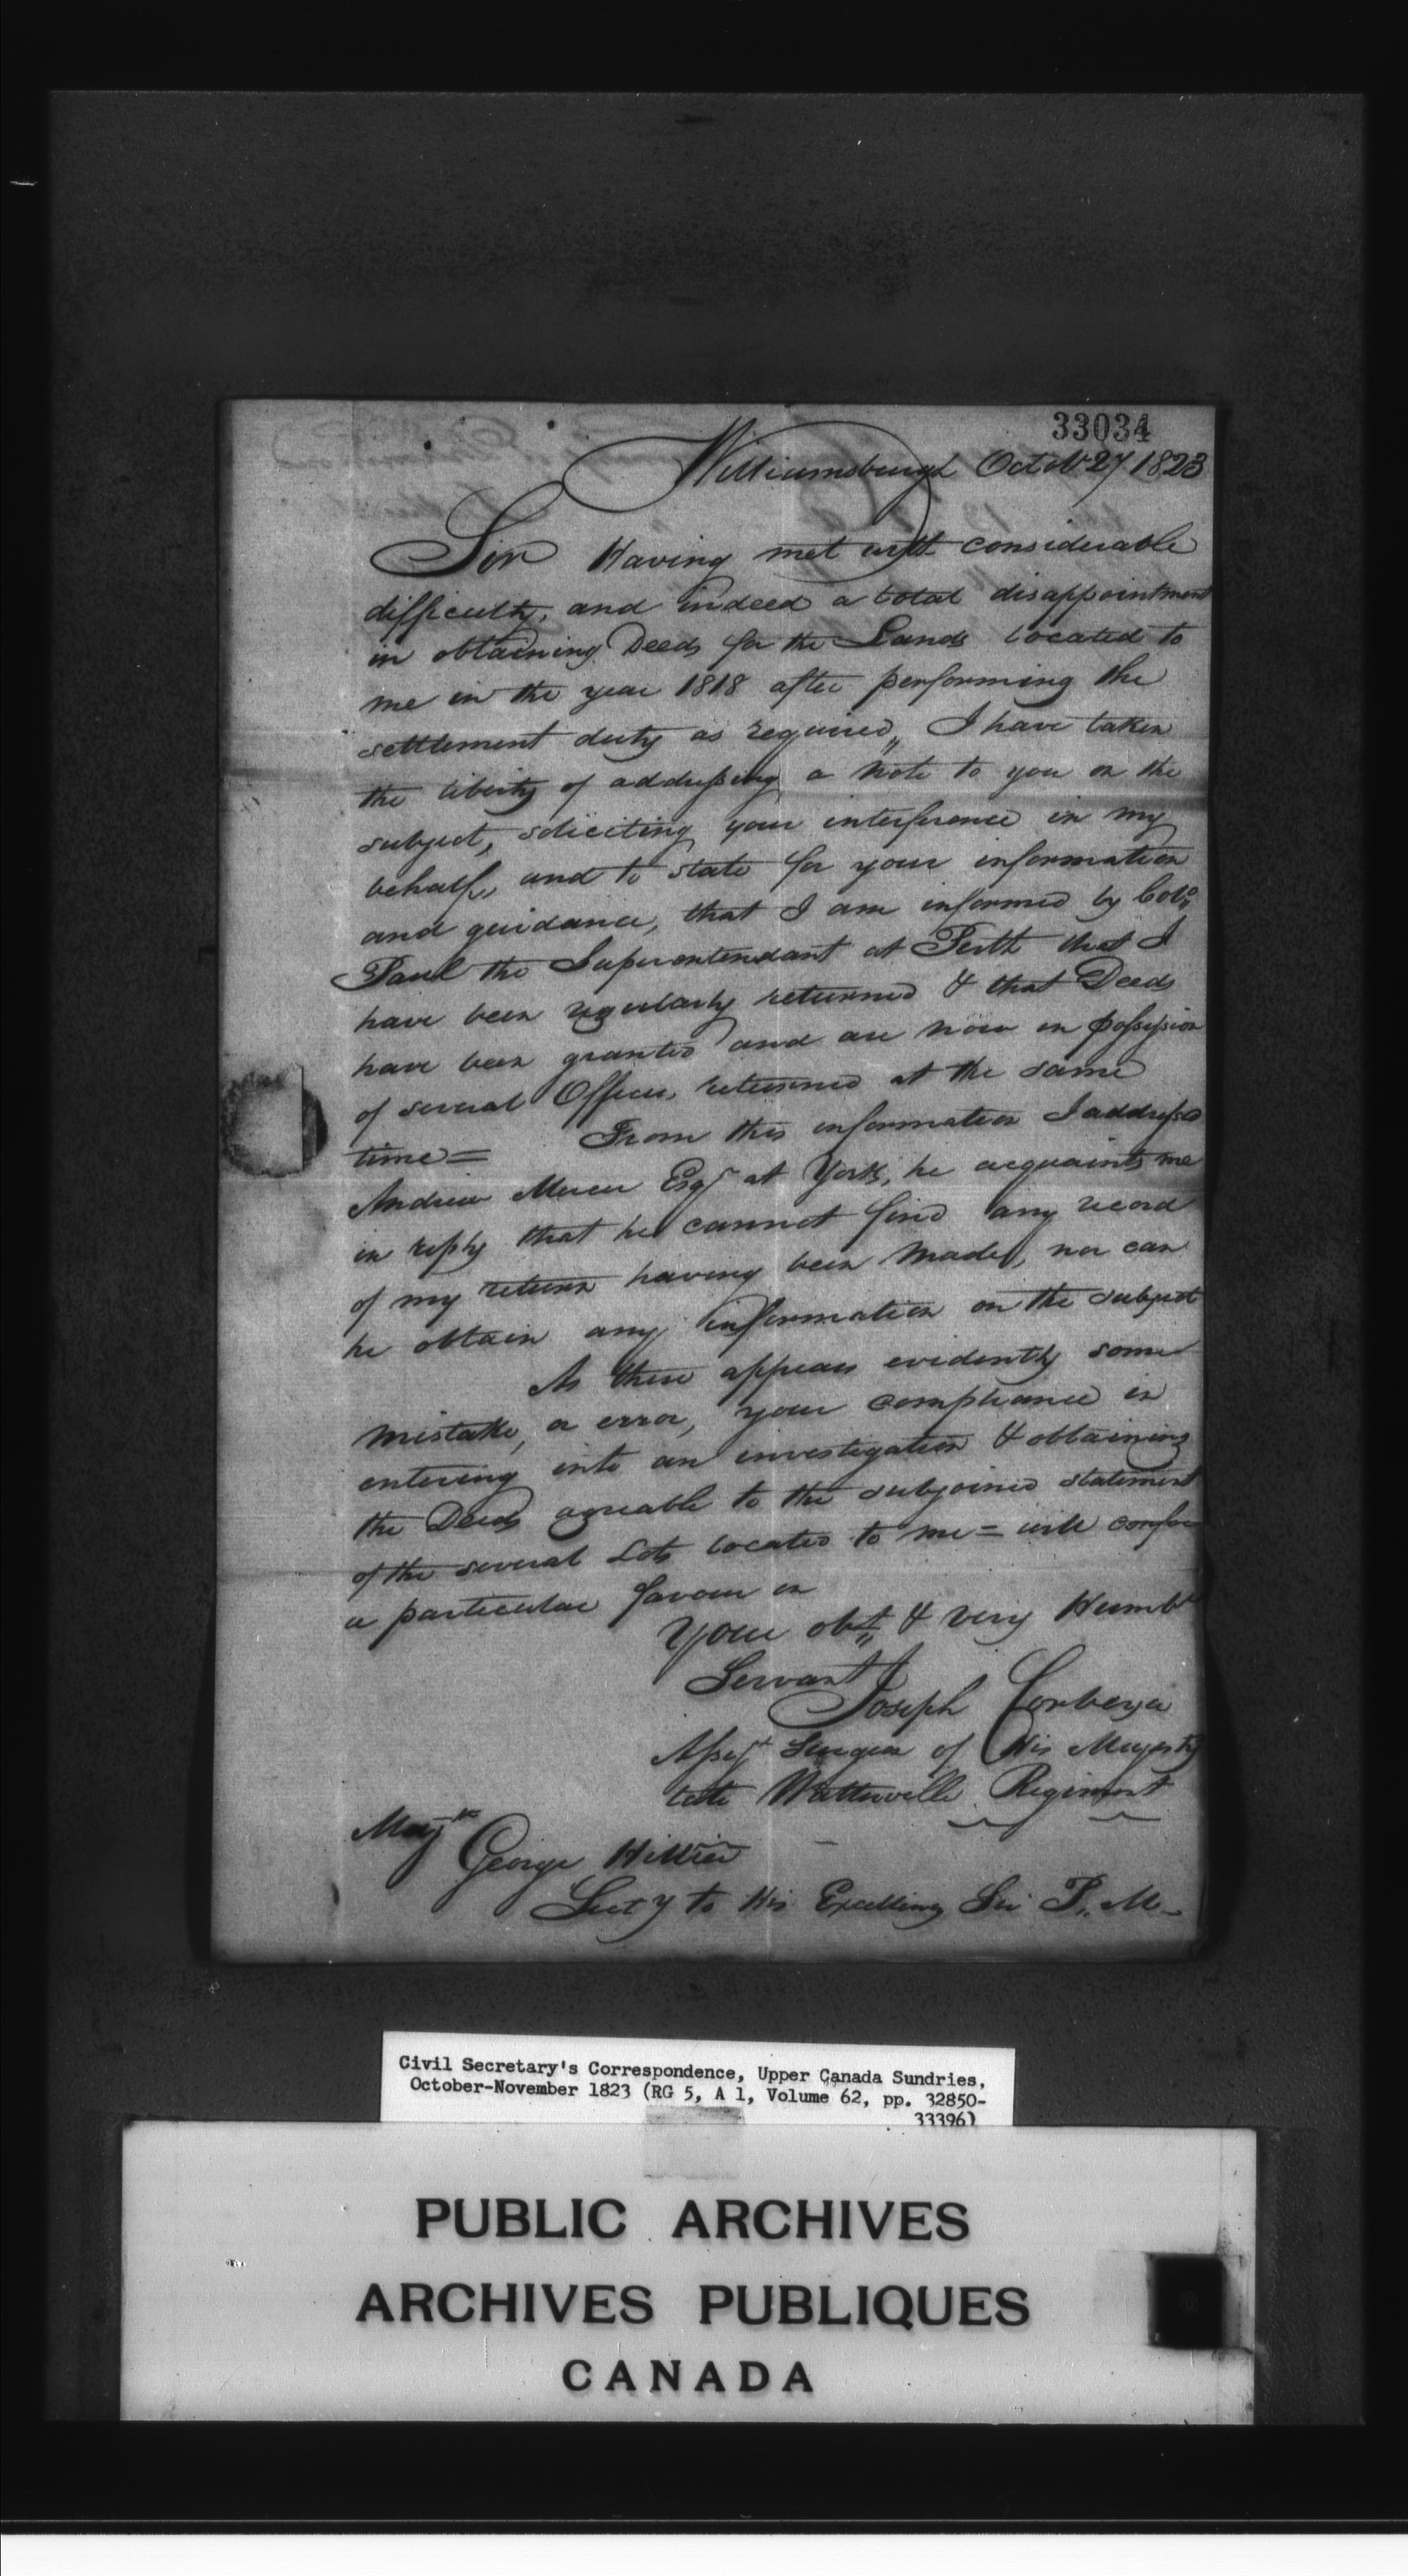 33034
Williamsburgh Octobr 27 1823
Sir Having met with considerable
difficulty, and indeed a total disappointment
in obtaining Deeds for the Lands located to
me in the year 1818 after performing the
settlement duty as required,, I have taken
the liberty of addressing a Note to you on the
subject, soliciting your interference in my
behalf, and to state for your information
and guidance, that I am informed by Col:
Paul the Superentendant at Perth that I
have been regularly returned & that Deeds
have been granted and are now in possession
of several Officers, returned at the same
time = From this information I addressed
Andrew Mercer Esqr at York, he acquaints me
in reply that he cannot find any record
of my return having been made, nor can
he obtain any information on the subject
As there appears evidently some
mistake, or error, your compliance in
entering into an investigation & obtaining
the Deeds agreable to the subjoined statement
of the several Lots located to me = will confer
a particular favour on
Your obt,, & very Humble
Servant
Joseph
Assist Surgeon of His Majesty
late Watteville Regiment
Majr
George Hillier
Secty to His Excellency Sir P,, M-
Civil Secretary's Correspondence, Upper Canada Sundries,
October-November 1823 (RG 5, A 1, Volume 62, pp. 32850-
33396)
PUBLIC ARCHIVES
ARCHIVES PUBLIQUES
CANADA